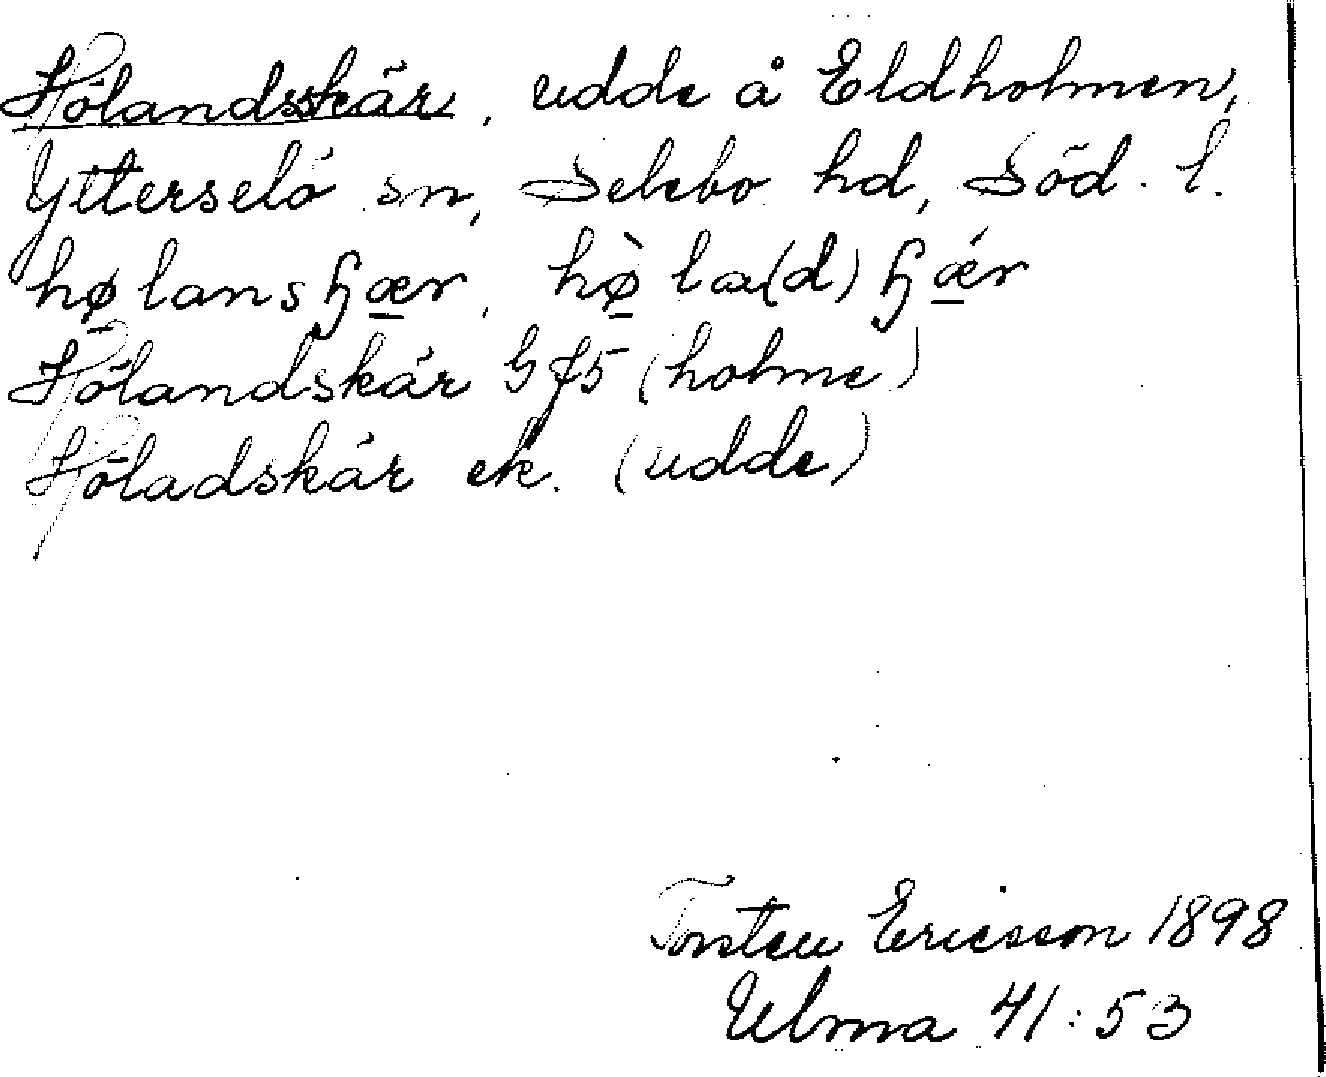 Hölandsskär, udde å Eldholmen,
Ytterselö sn, Selebo hd, Söd. l.
hø̱lansꞕæ̱r, hø̱̀la(d)ꞕǽ̱r
Hölandskär Gf5 (holme)
Höladskär ek. (udde)
Torsten Ericsson 1898
Ulma 41:53